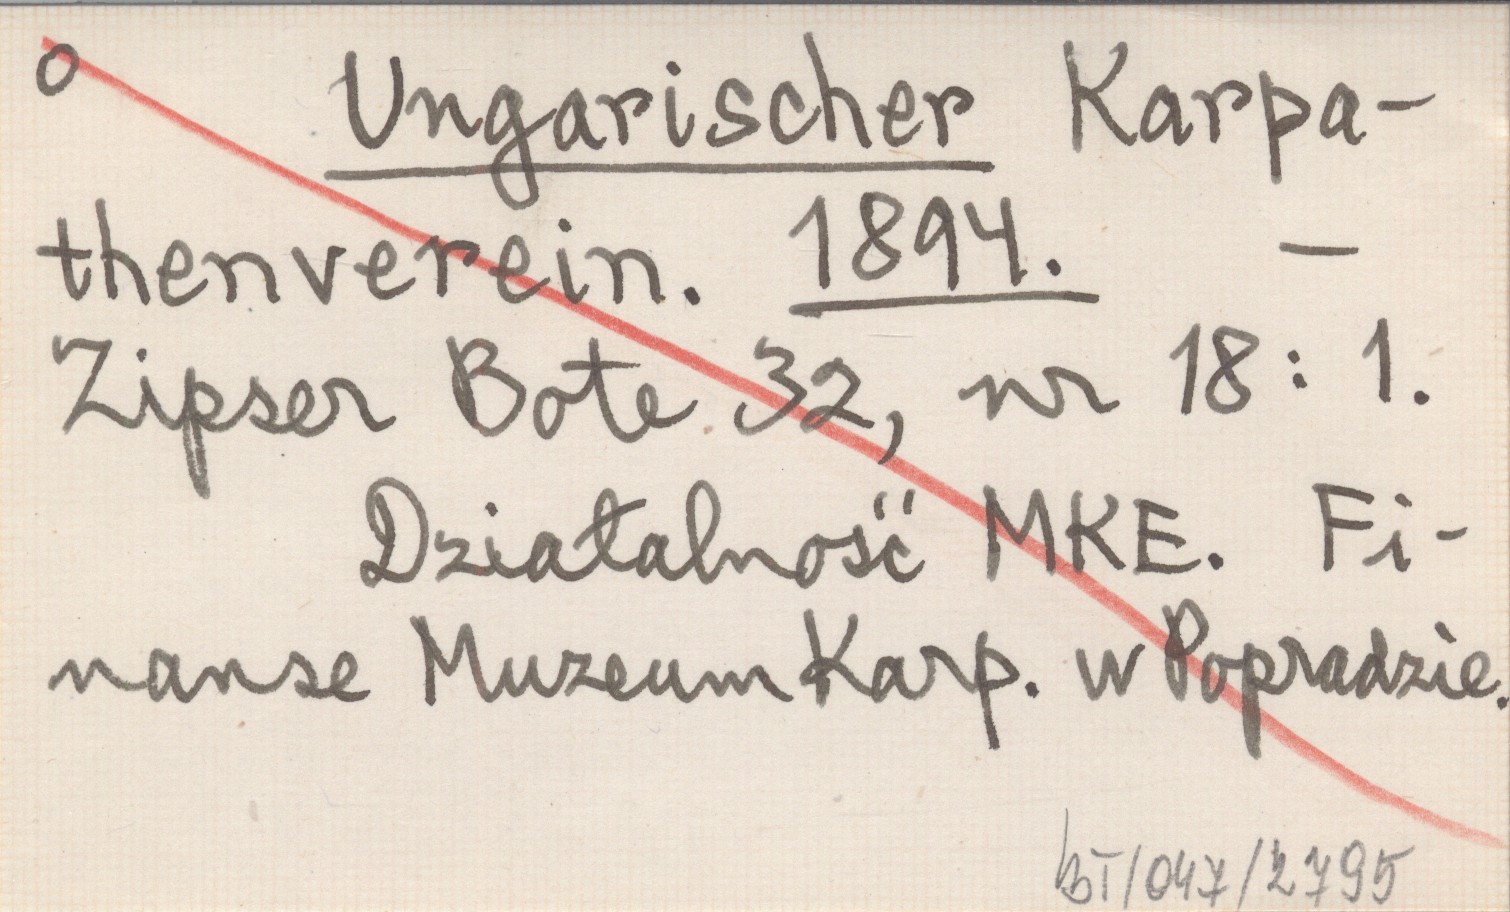 o Ungarischer Karpa-
thenverein. 1894. –
Zipser Bote 32, nr 18: 1.
Działalność MKE. Fi-
nanse Muzeum Karp. w Popradzie.
BT/047/2795